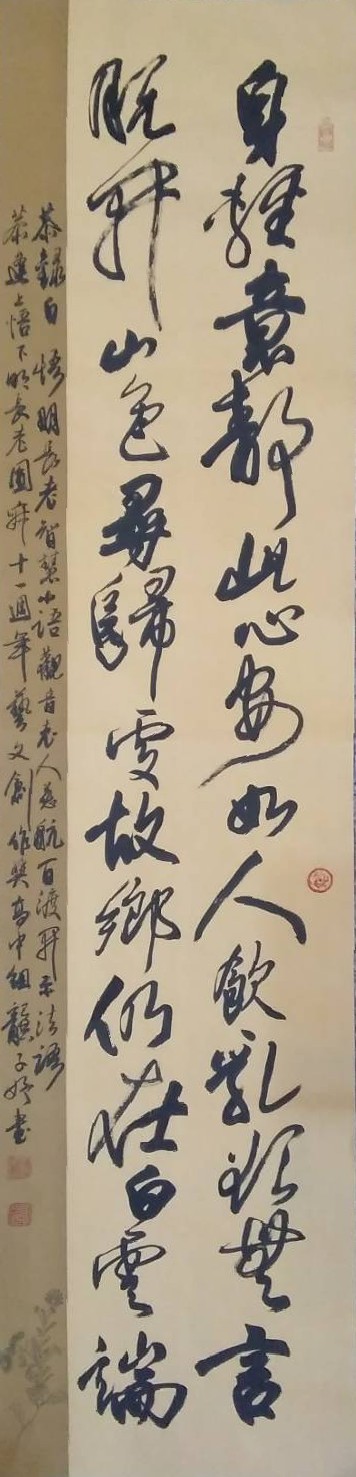 身輕意靜此心安如人飲乳無言
山色尋歸處故鄉仍在白雲端
恭錄自 悟明長老智慧小語 觀音老人慈航百渡開示法語
恭逢上悟下明長老圓寂十一週年藝文創作獎高中組 龔子妤書